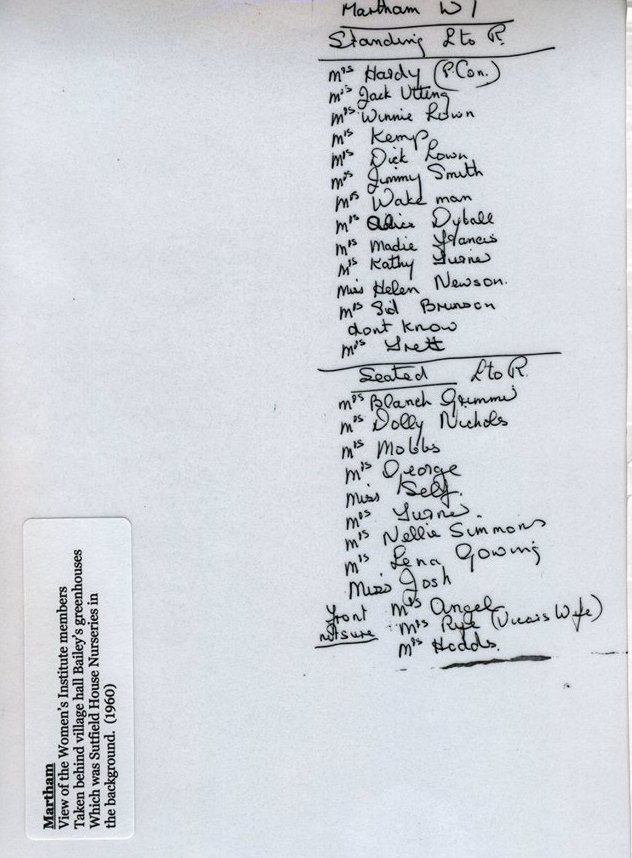 Martham W I
Standing L to R.
Mrs Hardy (P.Con.)
Mrs Jack Utting
Mrs Winnie Rown
Mrs Kemp
Mrs Dick Rown
Mrs Jimmy Smith
Mrs Wakeman
Mrs Alice Dyball
Mrs Madie Francis
Mrs Kathy Turner
Miss Helen Newson.
Mrs Sid Brunson
dont know
Mrs Trett
Seated L to R.
Mrs Blanch Grimmi
Mrs Dolly Nichols
Mrs Mobbs
Mrs George
Miss Self.
Mrs Turner.
Mrs Nellie Simmons
Mrs Lena Gowing
Miss Josh
Front Mrs Angel
not sure Mrs Rye (Vicars Wife)
Mrs Hodds.
Martham
View of the Women's Institute members
Taken behind village hall Bailey's greenhouses
Which was Sutfield House Nurseries in
the background. (1960)